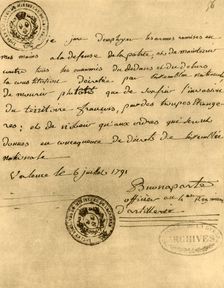 56
je jure d'employer les armes remises en
mes mains à la defense de la patrie, et de maintenir
contre tous les ennemis du dedans et du dehors
la constitution décretée par l'assemblée nationale
de mourir plutôt que de souffrir l'invasion
du territoire français par des troupes étrange-
res; et de n'obeir qu'aux ordres qui seront
donnés en consequence des décrets de l'assemblée
nationale
Valence le 6 juillet 1791
Buonaparte
officier au 4me Regiment
d'artillerie
ARCHIVES